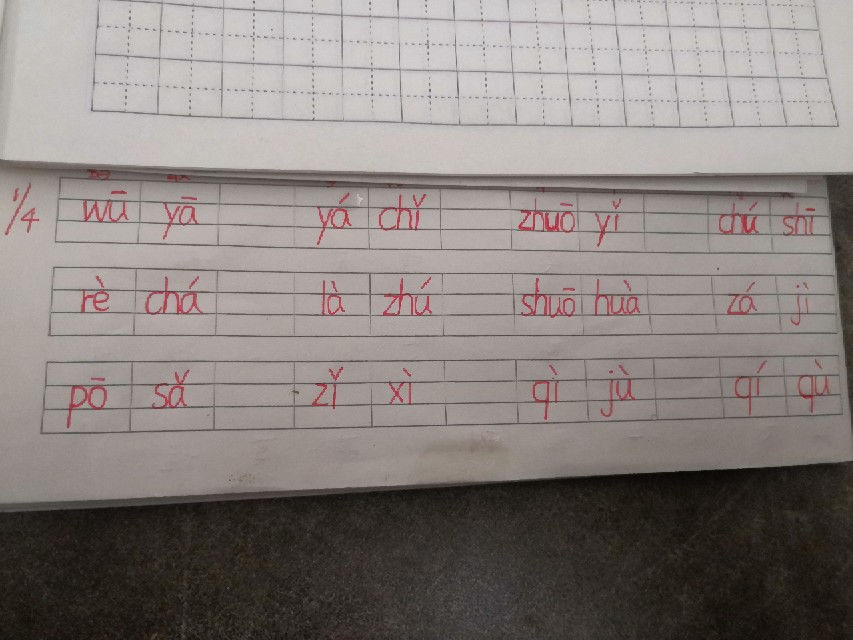 1/4 wū yā yá chǐ zhuō yǐ chú shī
rè chá là zhú shuō huà zá jì
pō sǎ zǐ xì qì jù qí qù